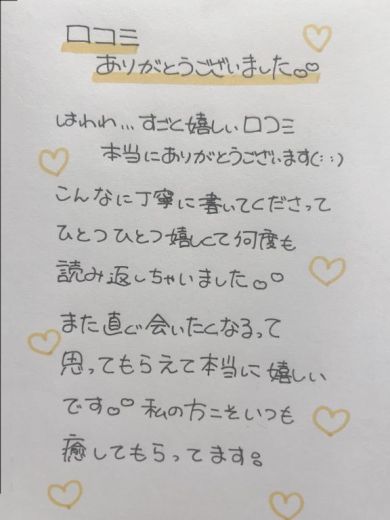 口コミ
ありがとうございました。
はわわ...すごく嬉しい口コミ
本当にありがとうございます(: :)
こんなに丁寧に書いてくださって
ひとつひとつ嬉しくて何度も
読み返しちゃいました。
また直ぐ会いたくなるって
思ってもらえて本当に嬉しい
です。私の方こそいつも
癒してもらってます。